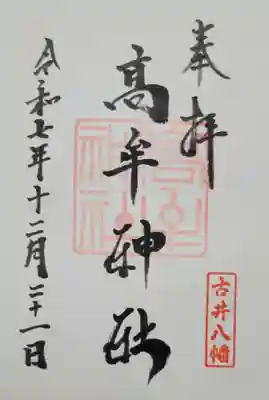 奉拝
古井八幡
高牟神社
令和七年十二月二十一日